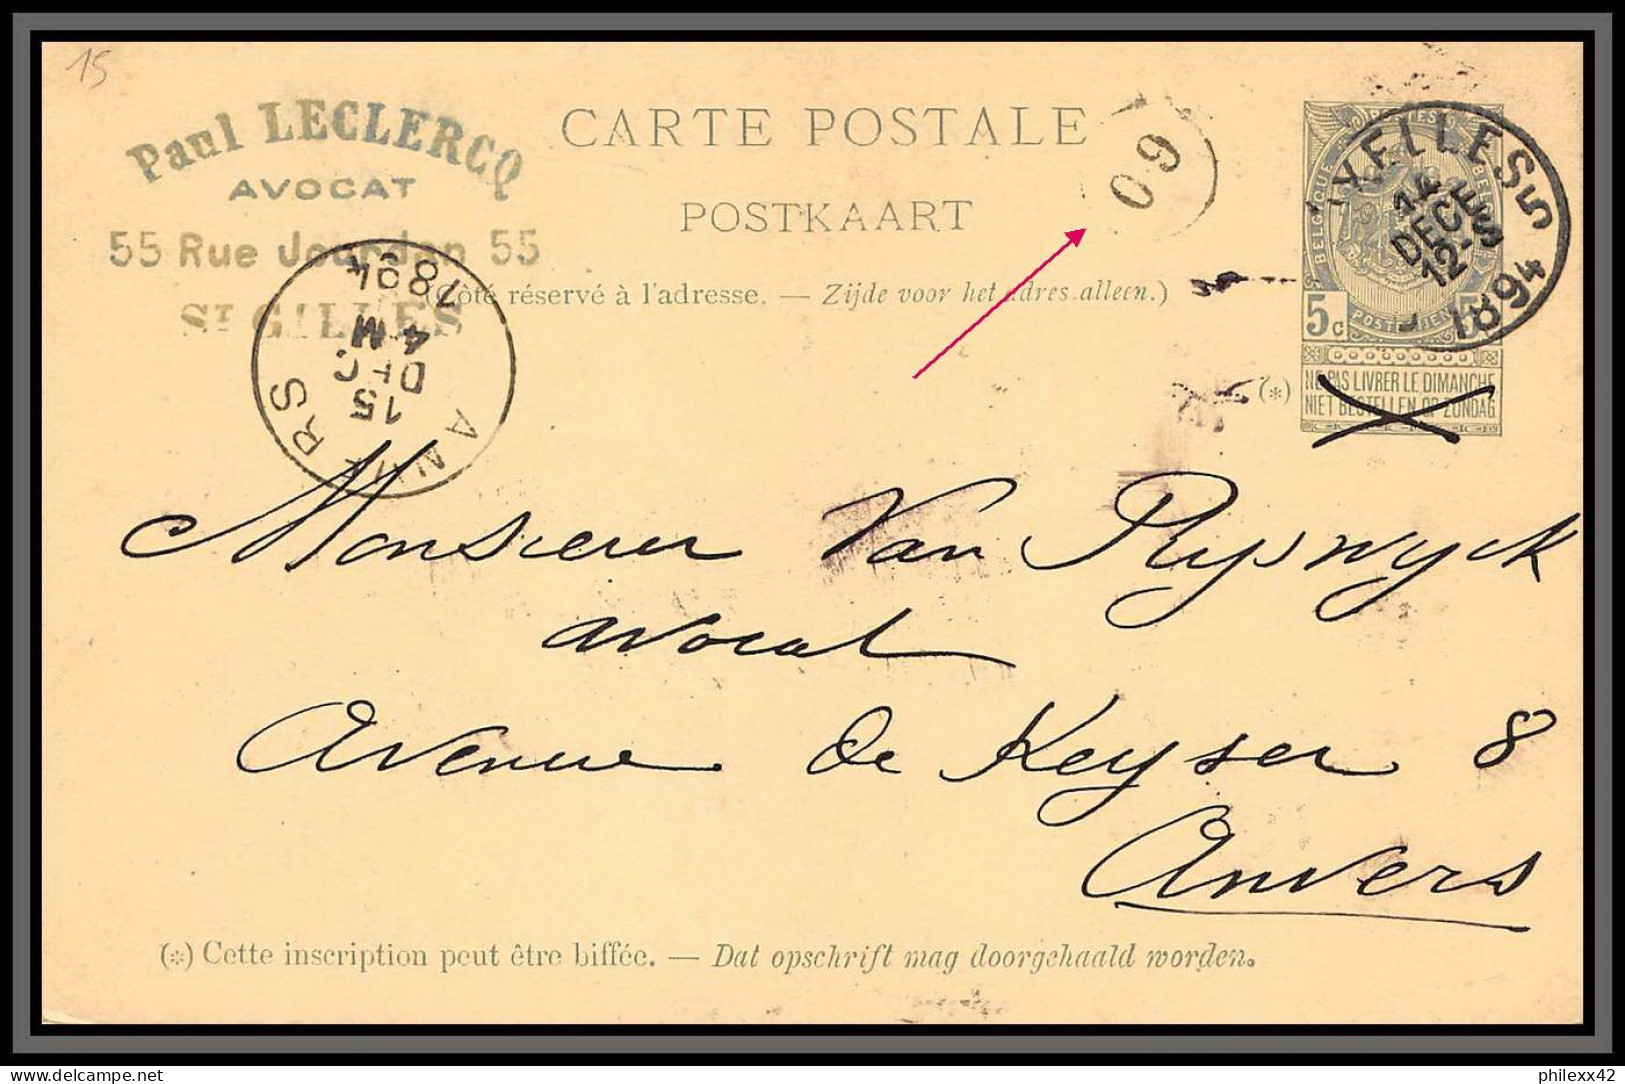 15
Paul LECLERCQ
AVOCAT
55 Rue Jourdan 55
ST GILLES
CARTE POSTALE
POSTKAART
(Côté réservé à l'adresse. — Zijde voor het adres alleen.)
BELGIQUE
5c
NE PAS LIVRER LE DIMANCHE
NIET BESTELLEN OP ZONDAG
(*)
IXELLES
14
DECE
12-S
1894
ANVERS
15
DEC
4 M
1894
Monsieur Van Ryswyck
avocat
Avenue De Keyser 8
Anvers
(*) Cette inscription peut être biffée. — Dat opschrift mag doorgehaald worden.
philexx42